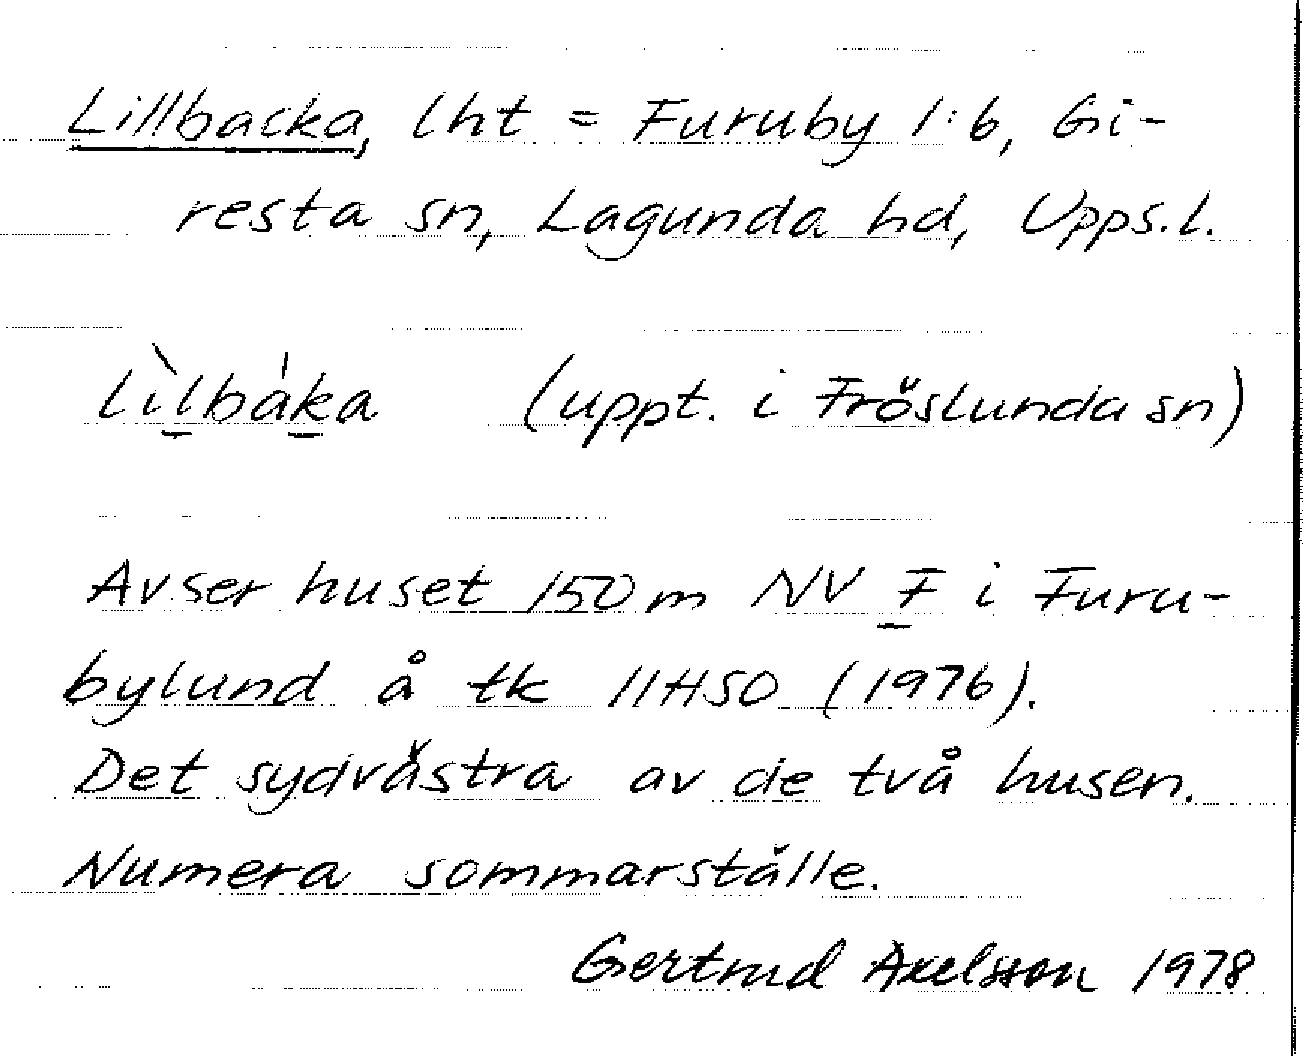 Lillbacka, lht = Furuby 1:6, Gi-
resta sn, Lagunda hd, Upps.l.
lìl̲bák̲a (uppt. i Fröslunda sn)
Avser huset 150 m NV F̲ i Furu-
bylund å tk 11H5O (1976).
Det sydvästra av de två husen.
Numera sommarställe.
Gertrud Axelsson 1978